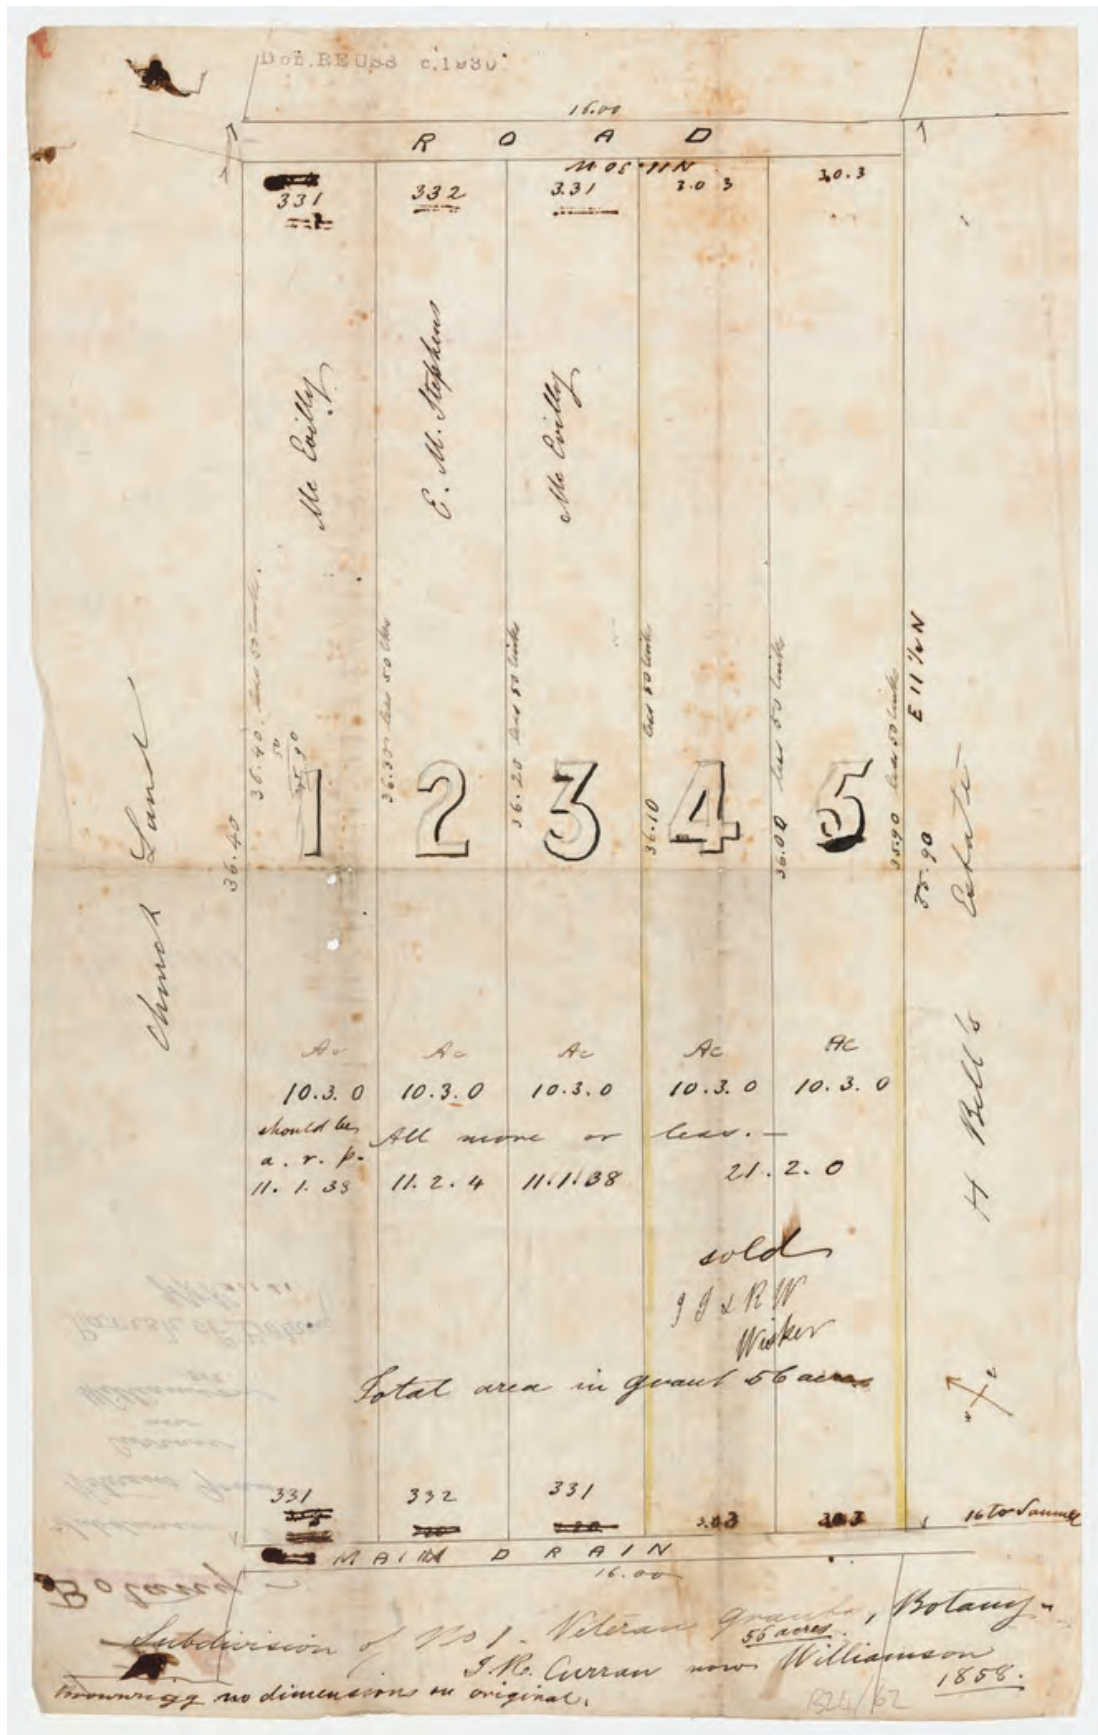 16.00
R O A D
N 11.30 W
331
332
3.31
3.0 3
3.0.3
Mc Evilly
E. M. Stephens
Mc Evilly
36.40 less 50 links.
50
35.90
36.30 less 50 lks
36.20 less 50 links
36.10 less 50 links
36.00 less 50 links
35.90 less 50 links
E 11 ½ N
36.40
35.90
Church Land
H Bell's Estate
1 2 3 4 5
Ac Ac Ac Ac Ac
10.3.0 10.3.0 10.3.0 10.3.0 10.3.0
should be
All more or less. —
a. r. p.
11. 1. 38 11. 2. 4 11.1.38 21. 2. 0
sold
J J & R W
Wicker
Total area in grant 56 acres
331 332 331 3.03 303
16 to
MAIN DRAIN
16.00
Botany
Subdivision of No 1. Veteran Grants, Botany
56 acres.
J. R. Curran now Williamson
1858.
Brownrigg no dimensions on original.
B24/62